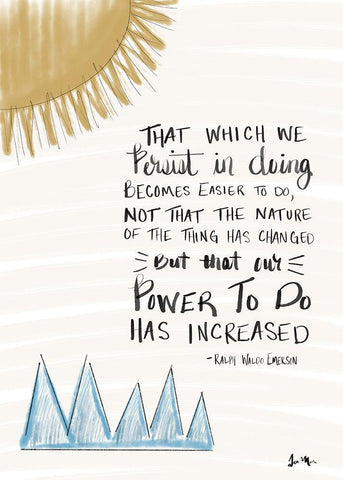 THAT WHICH WE
Persist in doing
BECOMES EASIER TO DO,
NOT THAT THE NATURE
OF THE THING HAS CHANGED
But that our
POWER TO DO
HAS INCREASED
-RALPH WALDO EMERSON